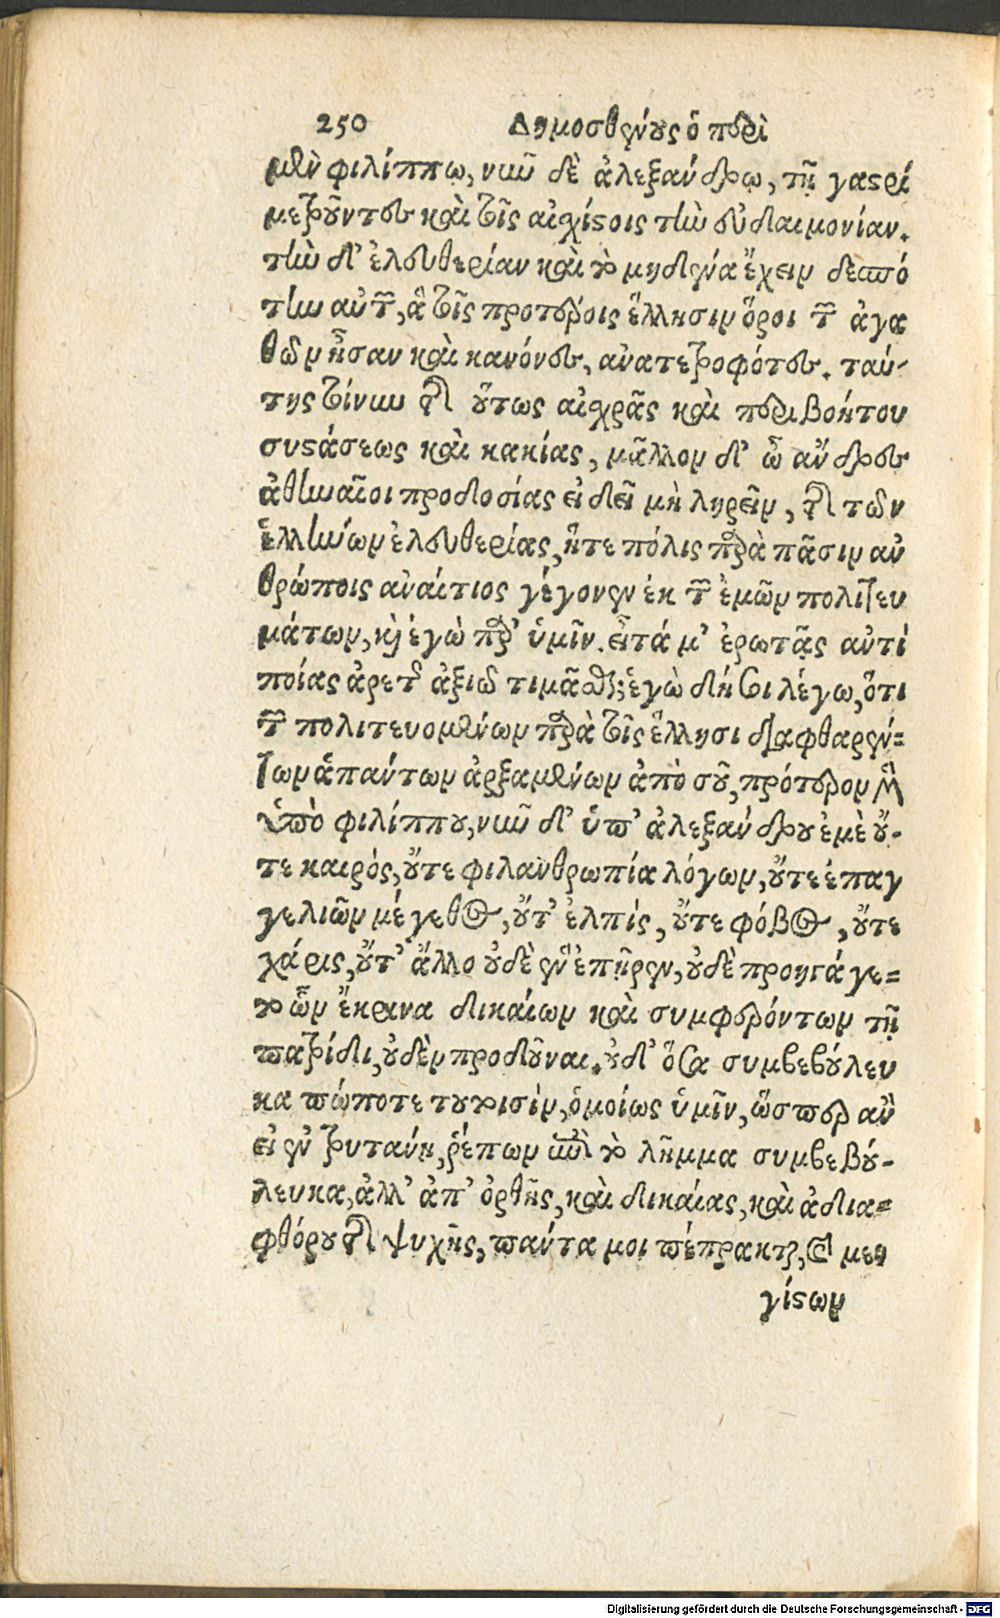 250 Δημοσθένους ὁ περὶ
μὲν φιλίππῳ, νῦν δὲ ἀλεξάνδρῳ, τῇ γαστρί
μετροῦντες καὶ τοῖς αἰσχίστοις τὴν εὐδαιμονίαν.
τὴν δ' ἐλευθερίαν καὶ τὸ μηδένα ἔχειν δεσπό
την αὐτῶν, ἃ τοῖς προτέροις ἕλλησιν ὅροι τῶν ἀγα
θῶν ἦσαν καὶ κανόνες, ἀνατετροφότες. ταύ-
της τοίνυν τῆς οὕτως αἰσχρᾶς καὶ περιβοήτου
συστάσεως καὶ κακίας, μᾶλλον δ' ὦ ἄνδρες
ἀθηναῖοι προδοσίας εἰ δεῖ μὴ ληρεῖν, τῆς τῶν
ἑλλήνων ἐλευθερίας, ἥτε πόλις παρὰ πᾶσιν ἀν
θρώποις ἀναίτιος γέγονεν ἐκ τῶν ἐμῶν πολιτευ
μάτων, καὶ ἐγὼ παρ' ὑμῖν. εἶτά μ' ἐρωτᾷς ἀντὶ
ποίας ἀρετῆς ἀξιῶ τιμᾶσθαι; ἐγὼ δή σοι λέγω, ὅτι
τῶν πολιτευομένων παρὰ τοῖς ἕλλησι διαφθαρέν=
των ἁπάντων ἀρξαμένων ἀπὸ σοῦ, πρότερον μὲν
ὑπὸ φιλίππου, νῦν δ' ὑπ' ἀλεξάνδρου ἐμὲ οὔ-
τε καιρὸς, οὔτε φιλανθρωπία λόγων, οὔτε ἐπαγ
γελιῶν μέγεθος, οὔτ' ἐλπίς, οὔτε φόβος, οὔτε
χάρις, οὔτ' ἄλλο οὐδὲν ἐπῆρεν, οὐδὲ προηγάγε=
το ὧν ἔκρινα δικαίων καὶ συμφερόντων τῇ
πατρίδι, οὐδὲν προδοῦναι. οὐδ' ὅσα συμβεβούλευ
κα πώποτε τουτοισὶν, ὁμοίως ὑμῖν, ὥσπερ ἂν
εἰ ἐν τρυτάνῃ, ῥέπων ἐπὶ τὸ λῆμμα συμβεβού-
λευκα, ἀλλ' ἀπ' ὀρθῆς, καὶ δικαίας, καὶ ἀδια=
φθόρου τῆς ψυχῆς, πάντα μοι πέπρακται, καὶ μεγ
γίστων
Digitalisierung gefördert durch die Deutsche Forschungsgemeinschaft - DFG